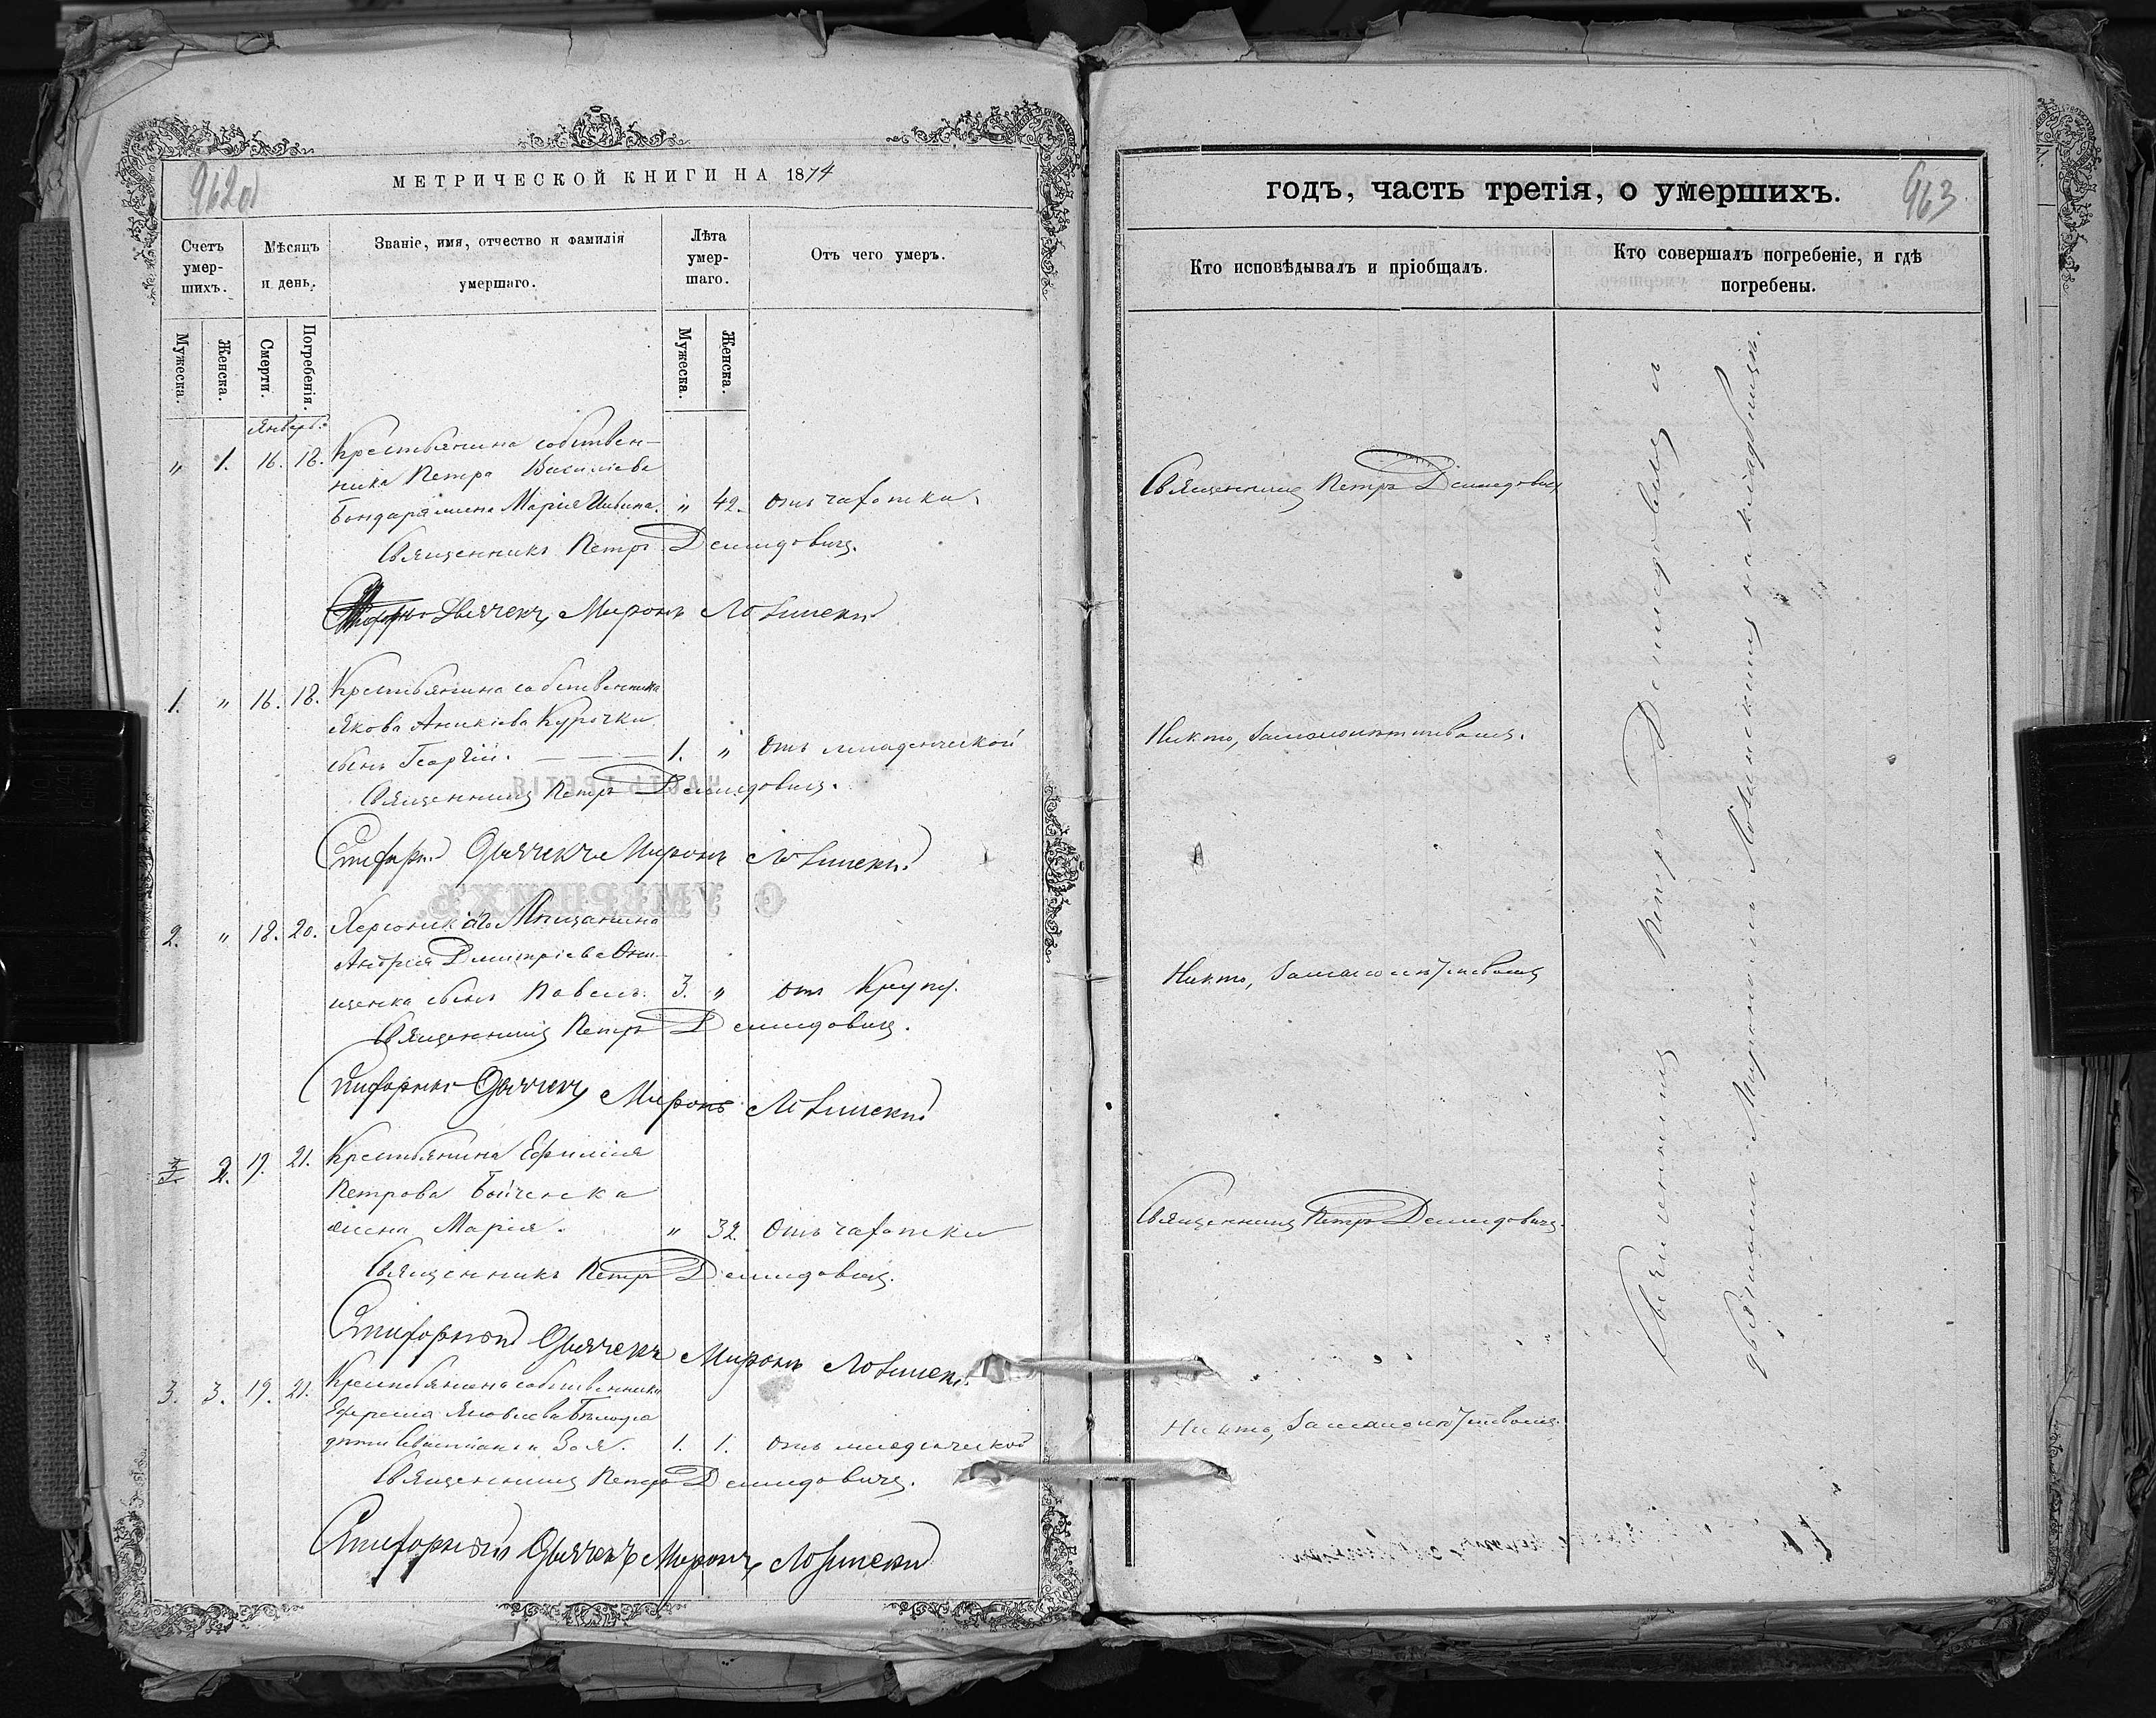 962об
МЕТРИЧЕСКОЙ КНИГИ НА 1874
Счетъ умершихъ.
Мѣсяцъ и день.
Званіе, имя, отчество и фамилія умершаго.
Лѣта умершаго.
Отъ чего умеръ.
Мужеска.
Женска.
Смерти.
Погребенія.
Мужеска.
Женска.
Январь.
Крестьянина собствен-
" 1. 16. 18. ника Петра Василіева
Бондаря жена Марія Ивана. " 42. отъ чахотки.
Священникъ Петръ Демидовичъ.
Дьячекъ Миронъ Лозинскій
Крестьянина собственника
1. " 16. 18. Якова Аникіева Курочки
сынъ Георгій. 1. " отъ младенческой
Священникъ Петръ Демидовичъ.
Стихарный Дьячекъ Миронъ Лозинскій
2. " 18. 20. Херсонскаго Мѣщанина
Андрея Дмитріева Они-
щенка сынъ Павелъ. 3. " отъ Крупу.
Священникъ Петръ Демидовичъ.
Стихарный Дьячекъ Миронъ Лозинскій
2. 19. 21. Крестьянина Ефимія
Петрова Бойченка
жена Марія. " 32 отъ чахотки
Священникъ Петръ Демидовичъ.
Стихарный Дьячекъ Миронъ Лозинскій
3. 3. 19. 21. Крестьянина собственника
Ефрема Яковлева
дѣти Севастіанъ и Зоя. 1. 1. отъ младенческой
Священникъ Петръ Демидовичъ.
Стихарный Дьячекъ Миронъ Лозинскій
годъ, часть третія, о умершихъ.
963
Кто исповѣдывалъ и пріобщалъ.
Кто совершалъ погребеніе, и гдѣ погребены.
Священникъ Петръ Демидовичъ
Никто, за малолѣтствомъ.
Никто, за малолѣтствомъ
Священникъ Петръ Демидовичъ.
Никто, за малолѣтствомъ.
Священникъ Петръ Демидовичъ и
дьячкомъ Мирономъ Лозинскимъ на кладбищѣ.